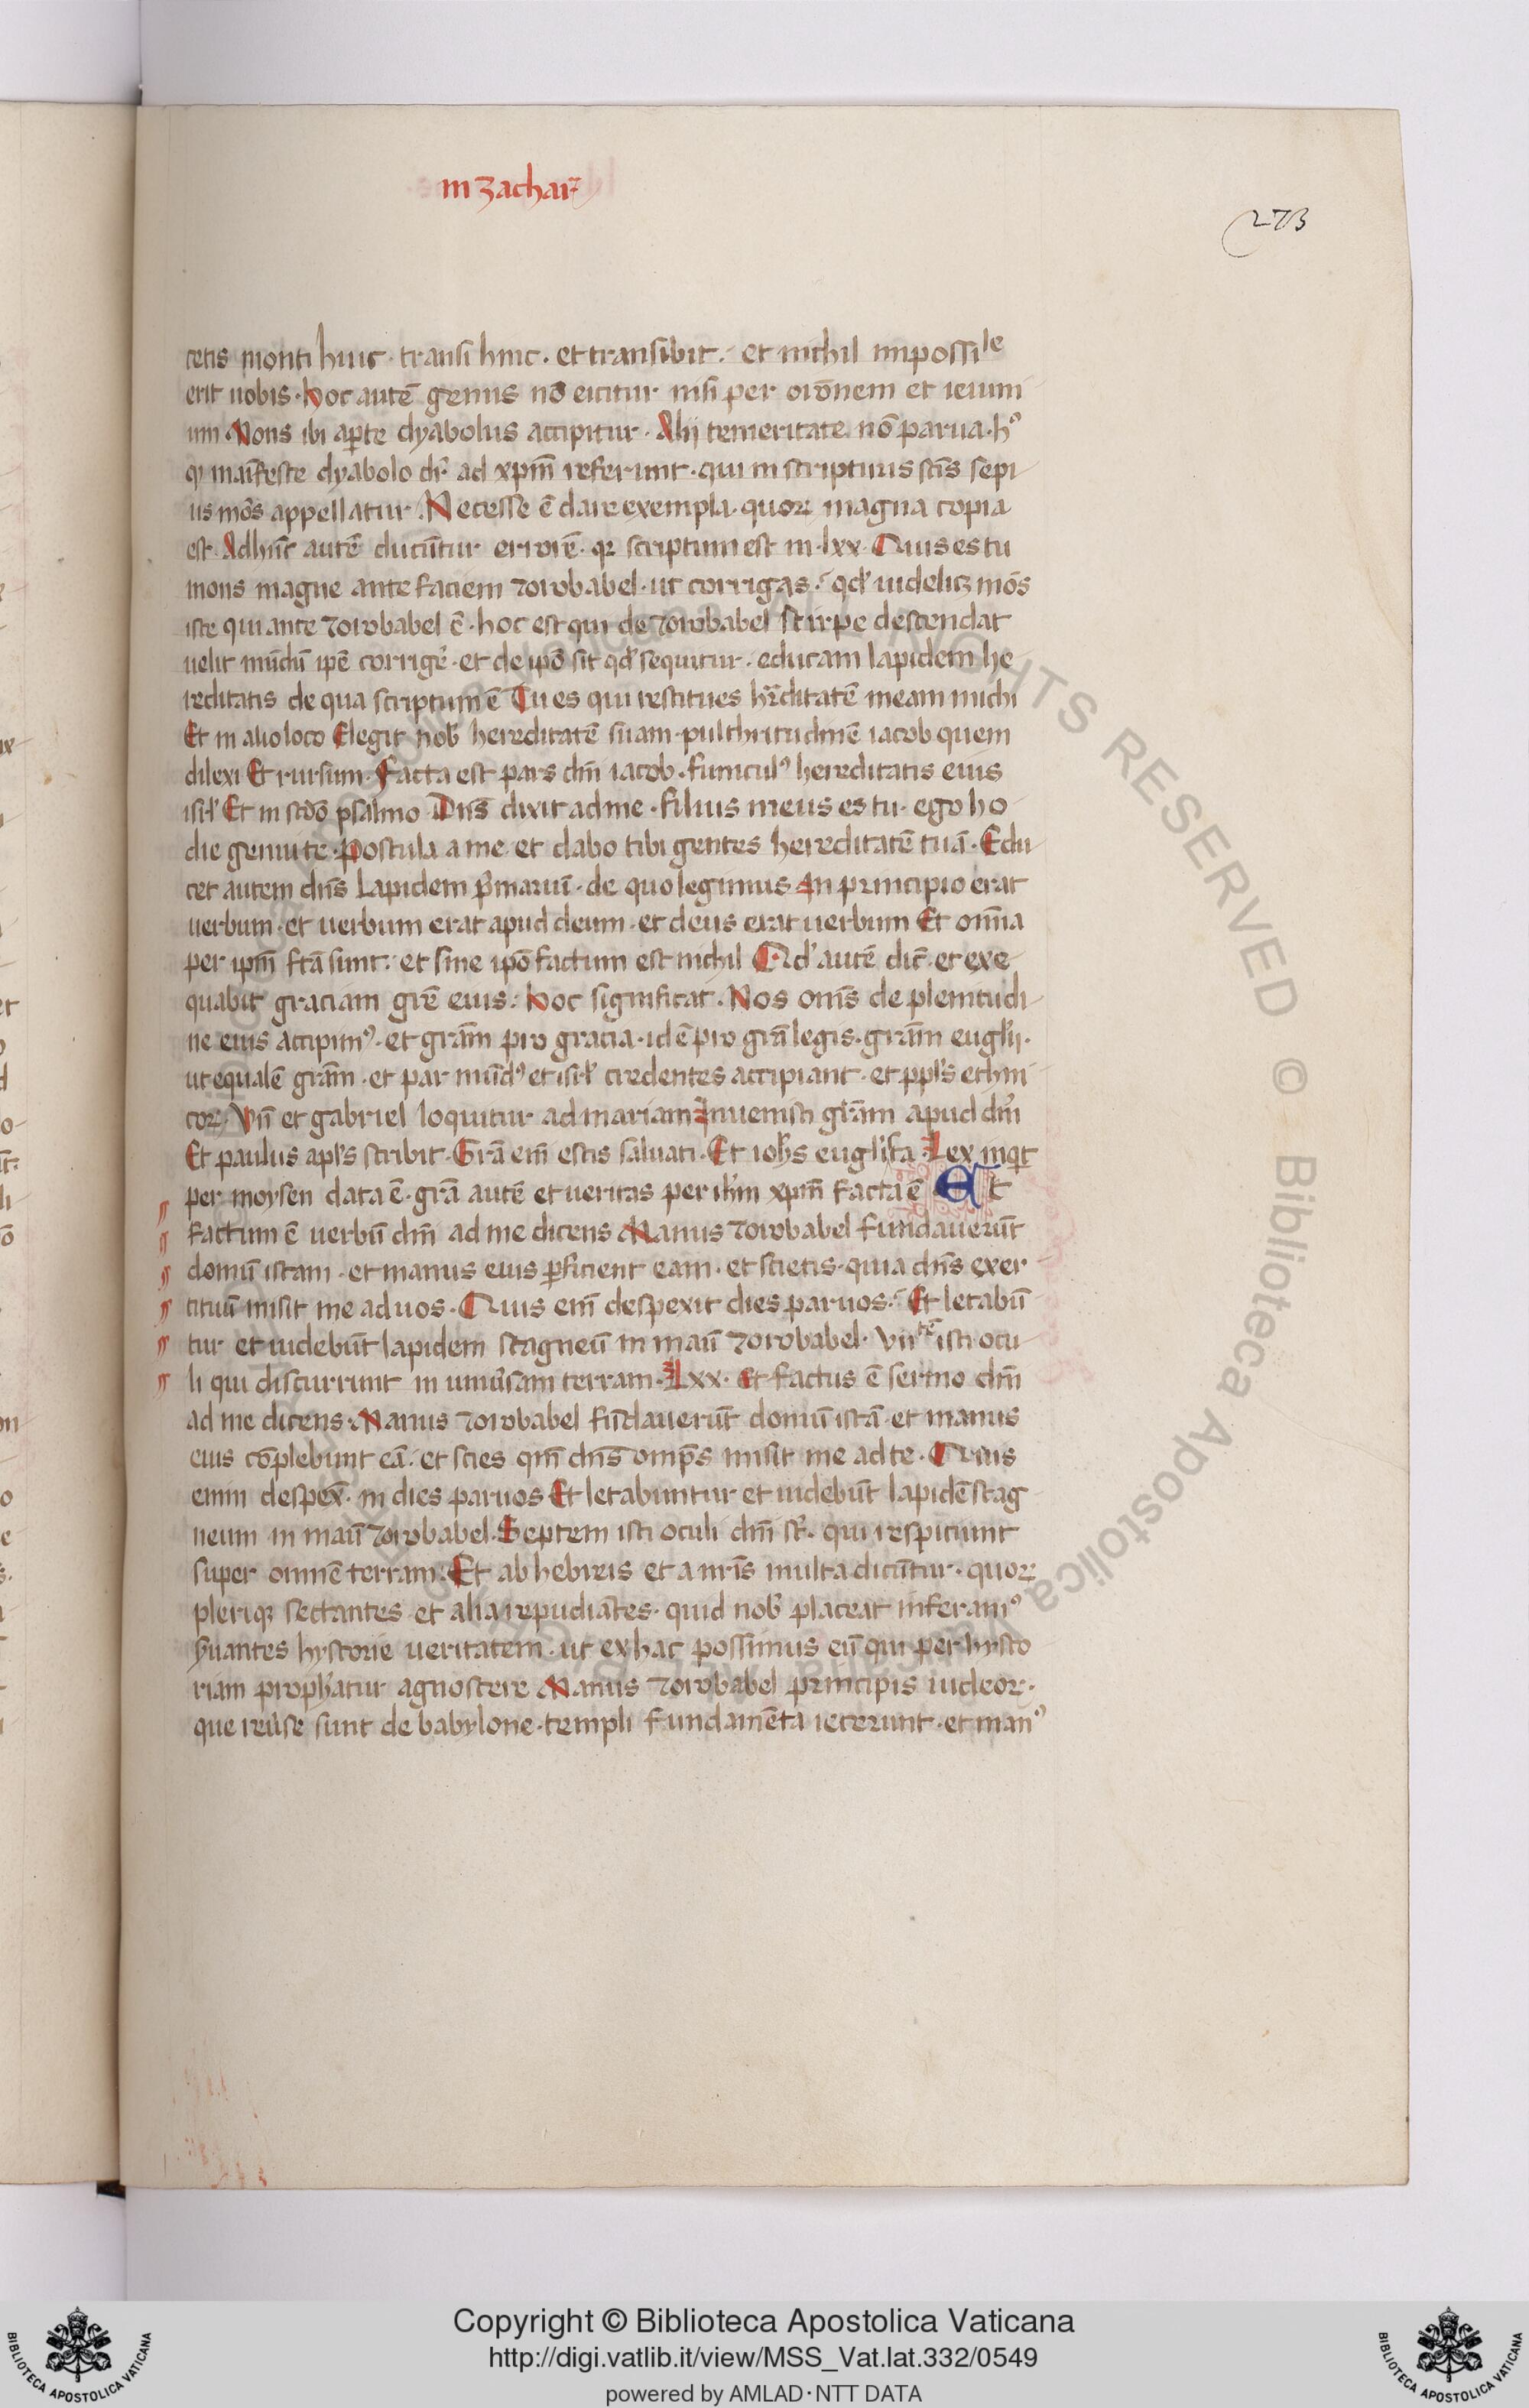 in Zachar᷑
273
cetis monti huic · transi hinc · et transibit · et nichil impossile
erit uobis · Hoc autē genus nō eicitur nisi per orōnem et ieiuni
um Mons ibi aperte dyabolus accipitur · Alij temeritate nō parua · h᷒
q᷒ maīfeste dyabolo dr̄ ad xpm̄ referunt · qui in scripturis sc̄is sepi
us mōs appellatur Necesse ē dare exempla · quoꝝ magna copia
est · Adhuīc autē ducūtur errorē · qꝛ scriptum est in · lxx · Quis es tu
mons magne ante faciem zorobabel · ut corrigas · qd̄ uidelicꝫ mōs
iste qui ante zorobabel ē · hoc est qui de zorobabel stirpe descendat
uelit mūdū ip̄e corrigē · et de ip̄o sit qd̄ sequitur · educam lapidem he
reditatis de qua scriptum ē Tu es qui restitues hr̄ditatē meam michi
Et in alio loco Elegit nob̄ hereditatē suam · pulchritudinē iacob quem
dilexi Et rursum · Facta est pars dn̄i iacob · funicul᷒ hereditatis eius
isr̄l Et in sc̄do psalmo Dn̄s dixit ad me · filius meus es tu · ego ho
die genui te · Postula a me et dabo tibi gentes hereditatē tuā · Edu
cet autem dn̄s lapidem p̄mariū · de quo legimus In principio erat
uerbum · et uerbum erat apud deum · et deus erat uerbum Et om̄ia
per ip̄m fc̄a sunt · et sine ip̄o factum est nichil Qd̄ autē dic̄ · et exe
quabit graciam grē eius · Hoc significat · Nos om̄s de plenitudi
ne eius accipim᷒ · et grām pro gracia · id ē pro grā legis · grām eugl̄ij ·
ut equalē grām · et par mūd᷒ et isr̄l credentes accipiant · et ppl̄s ethni
coꝝ · Vn̄ et gabriel loquitur ad mariam Inuenisti grām apud dm̄
Et paulus apl̄s scribit · Grā em̄ estis saluati · Et ioh̄s eugl̄ista Lex inqͥt
per moysen data ē · grā autē et ueritas per ih̄m xpm̄ facta ē Et
factum ē uerbū dn̄i ad me dicens Manus zorobabel fundauerūt
domū istam · et manus eius ꝑficient eam · et scietis · quia dn̄s exer
cituū misit me ad uos · Quis em̄ despexit dies paruos · Et letabū
tur et uidebūt lapidem stagneū in manū zorobabel · vii᷒te isti ocu
li qui discurrunt in uniūsam terram · Lxx · Et factus ē sermo dn̄i
ad me dicens · Manus zorobabel fūdauerūt domū istā · et manus
eius cōplebunt eā · et scies qm̄ dn̄s omp̄s misit me ad te · Quis
enim despex̄ · in dies paruos Et letabuntur et uidebūt lapidē stag
neum in manū zorobabel · Septem isti oculi dn̄i st̄ · qui respiciunt
super omnē terram · Et ab hebreis et a nr̄is multa dicūtur · quoꝝ
pleriqꝫ sectantes et alia repudiātes · quid nob̄ placeat inferam᷒
s̄uantes hystorie ueritatem · ut ex hac possimus eū qui per hysto
riam proph̄atur agnoscere Manus zorobabel principis iudeoꝝ ·
que reūse sunt de babylone · templi fundamēta iecerunt · et man᷒
Copyright © Biblioteca Apostolica Vaticana
http://digi.vatlib.it/view/MSS_Vat.lat.332/0549
powered by AMLAD · NTT DATA